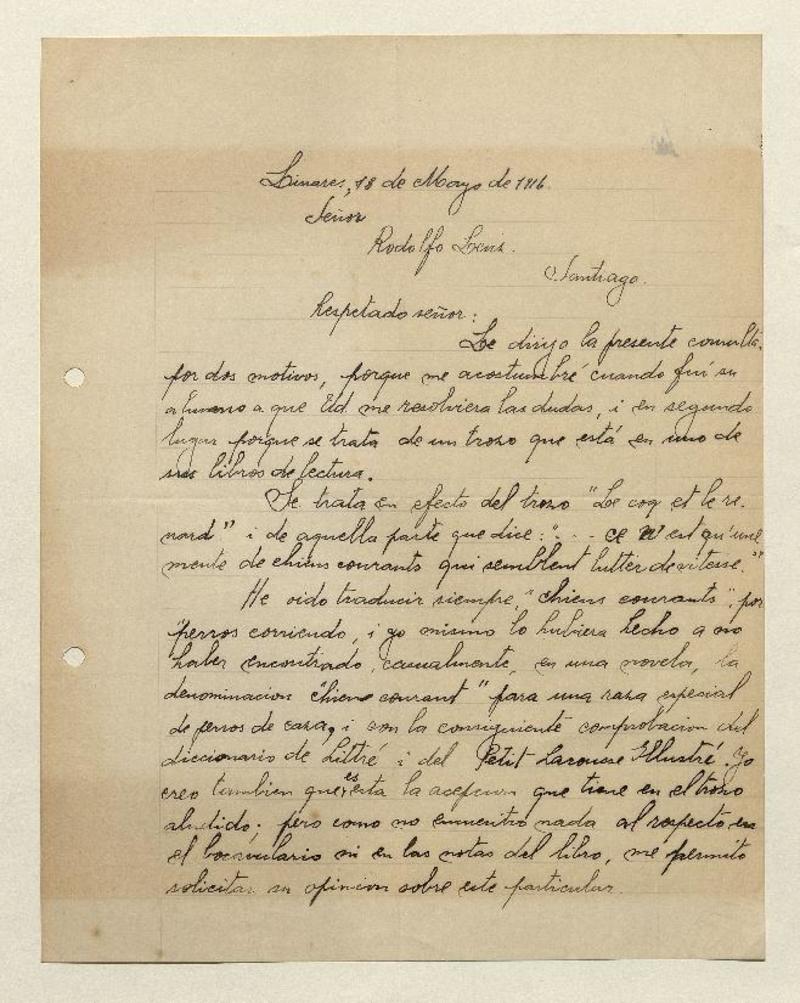 Linares, 18 de Mayo de 1916.
Señor
Rodolfo Lenz.
Santiago.
Respetado señor:
Le dirijo la presente consulta,
por dos motivos, porque me acostumbré cuando fuí su
alumno a que Ud. me resolviera las dudas, i en segundo
lugar porque se trata de un trozo que está en uno de
sus libros de lectura.
Se trata en efecto del trozo "Le coq et le re-
nard" i de aquella parte que dice: "... ce n'est qu'une
mente de chiens courants qui semblent lutter de vitesse."
He oido traducir siempre, "chiens courants", por
"perros corriendo, i yo mismo lo hubiera hecho a no
haber encontrado, casualmente, en una novela, la
denominacion "chien courant" para una raza especial
de perros de caza, i con la consiguiente comprobacion del
diccionario de Littré i del Petit Larousse Illustré. Yo
creo tambien que es esta la acepcion que tiene en el trozo
aludido; pero como no encuentro nada al respecto en
el vocavulario ni en las notas del libro, me permito
solicitar su opinion sobre este particular.